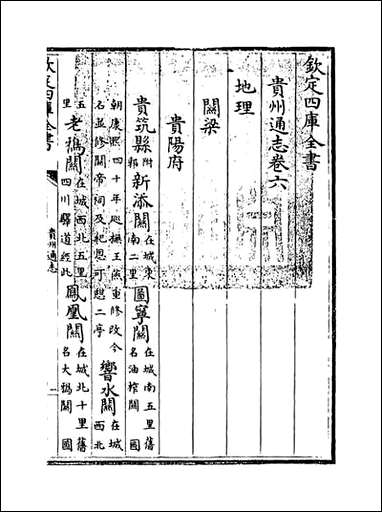 欽定四庫全書
貴州通志卷六
地理
關梁
貴陽府
貴筑縣附郭新添關在城東南二里圖寧關在城南五里舊名油榨關國
朝康熙四十年廵撫王燕重修改今名並修關帝祠及祀恩可憩二亭響水關在城西北
五里老鴉關在城西北五里四川驛道經此鳳凰關在城北十里舊名大鴉關國
欽定四庫全書
貴州通志
一